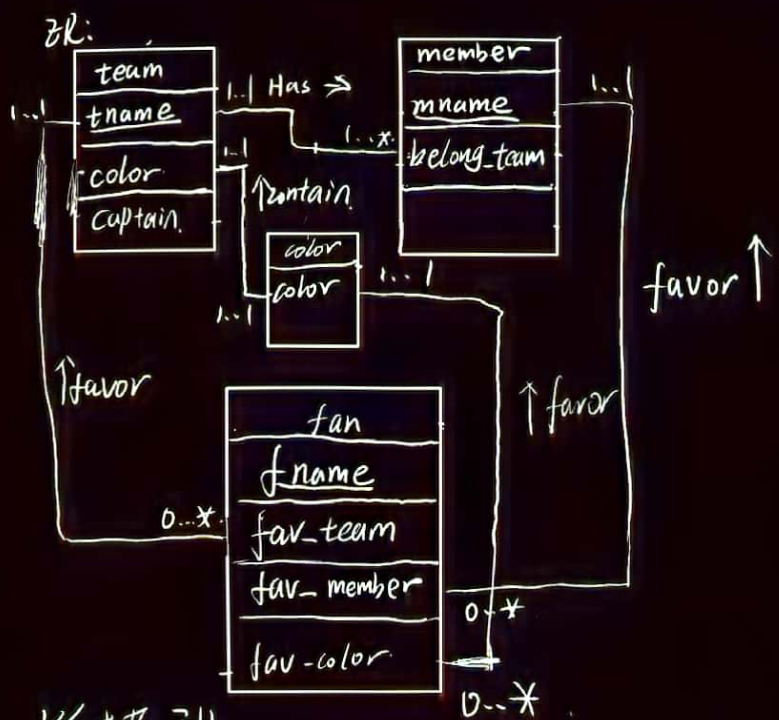 ER:
team
tname
color
captain
1..1
1..1 Has
1..*
1..1
contain
member
mname
belong_team
1..1
color
color
1..1
1...1
favor
favor
favor
fan
fname
fav_team
fav_member
fav-color
0...*
0..*
0...*